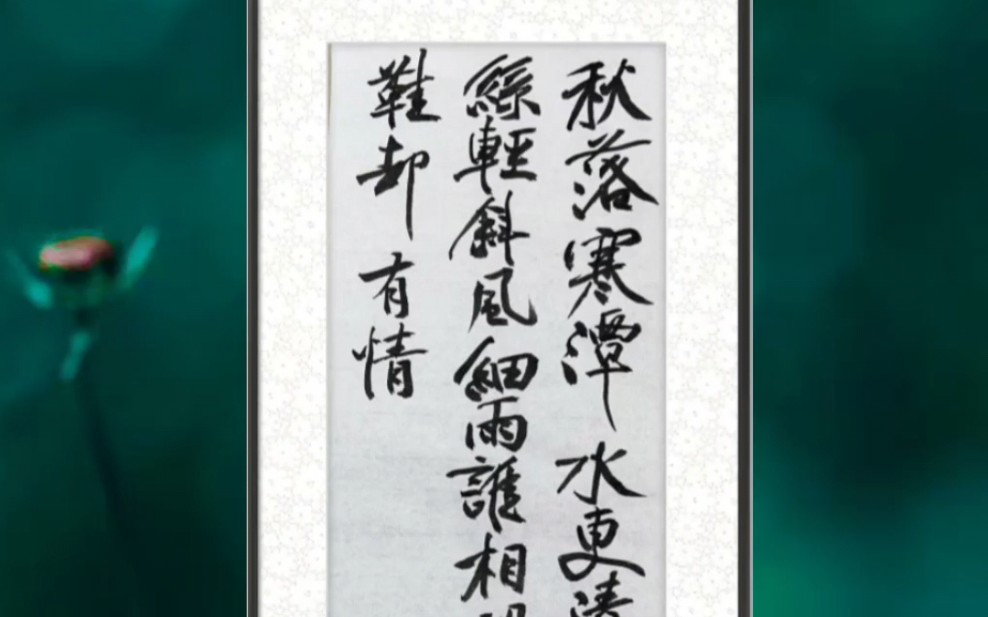 秋落寒潭水更清
絲輕斜風細雨誰相
鞋却有情